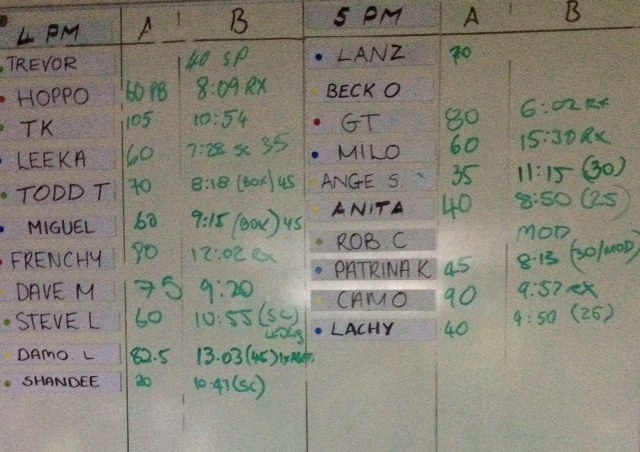 4 PM A B
TREVOR 40 SP
HOPPO 60 PB 8:09 RX
TK 105 10:54
LEEKA 60 7:28 SC 35
TODD T 70 8:18 (BOX) 45
MIGUEL 60 9:15 (BOX) 45
FRENCHY 80 12:02 RX
DAVE M 75 9:20
STEVE L 60 10:55 (SC)
DAMO. L 82.5 13.03 (45)
SHANDEE 20 10:47 (SC)
5 PM A B
LANZ 70
BECK O
GT 80 6:02 RX
MILO 60 15:30 RX
ANGE S. 35 11:15 (30)
ANITA 40 8:50 (25)
ROB C MOD
PATRINA K 45 8:13 (30/MOD)
CAMO 90 9:57 RX
LACHY 40 9:50 (25)